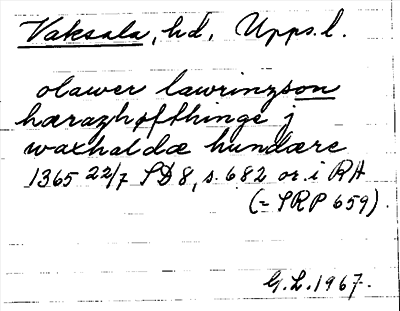 Vaksala, hd, Upps.l.
olawer lawrinzson
hærazhøfthinge j
waxhaldæ hundære
1365 22/7 SD 8, s. 682 or. i RA
(= SRP 659).
G.L. 1967.